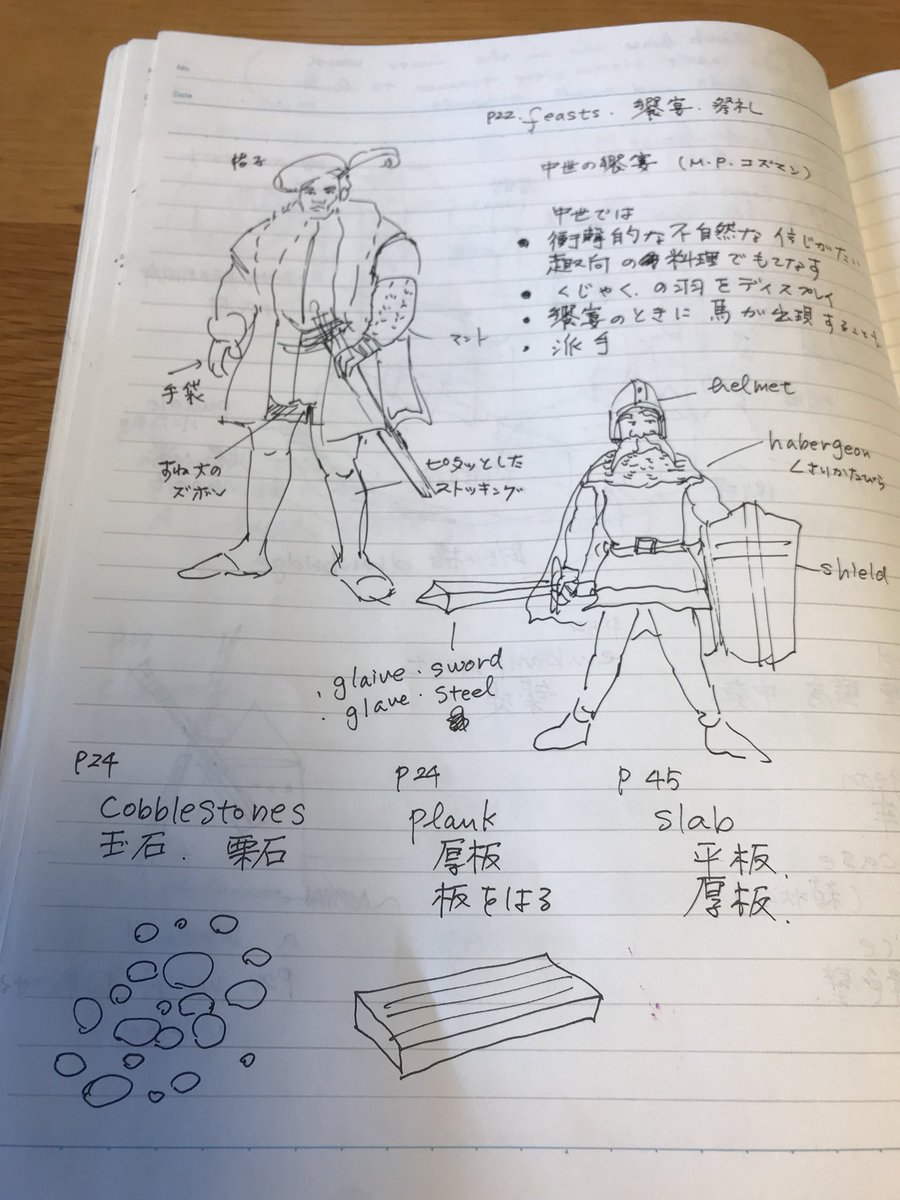 No.
Date
P22. feasts. 饗宴. 祭礼
帽子
中世の饗宴 (M.P.コズマン)
中世では
• 衝撃的な不自然な信じがたい
趣向の料理でもてなす
• くじゃく.の羽をディスプレイ
• 饗宴のときに馬が出現することも
• 派手
マント
手袋
すね丈の
ズボン
ピタッとした
ストッキング
helmet
habergeon
くさりかたびら
shield
. glaive. sword
. glave. steel
P24
Cobblestones
玉石. 栗石
P24
Plank
厚板
板をはる
P 45
slab
平板.
厚板.